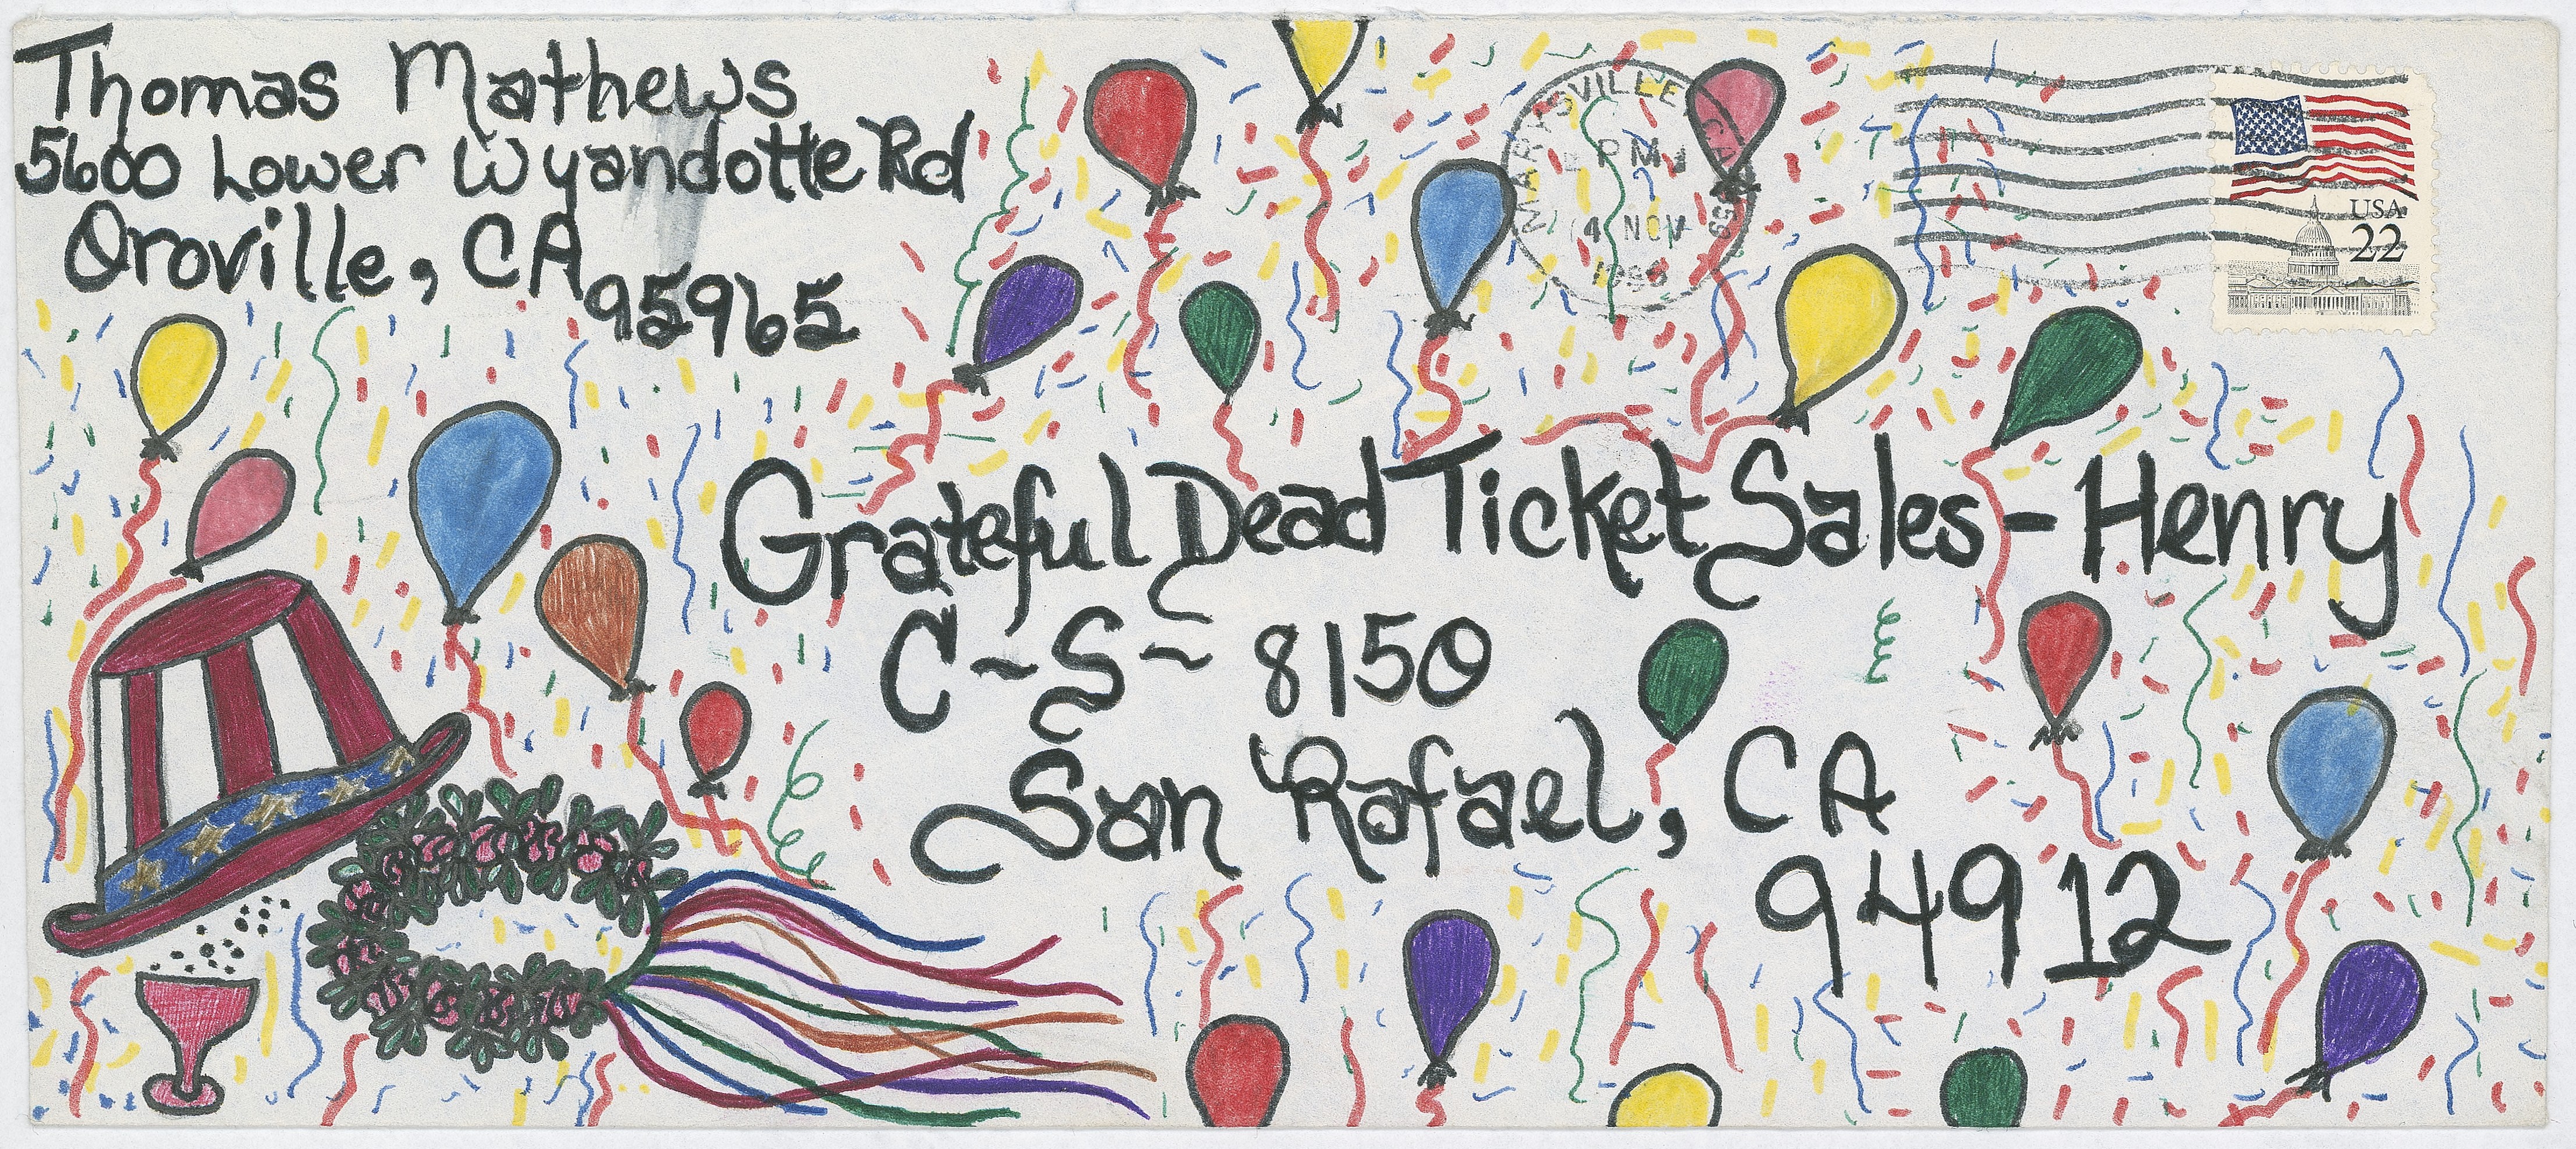 Thomas Mathews
5600 Lower Wyandotte Rd
Oroville, CA
95965
MARYSVILLE, CA 959
PM
14 NOV
USA
22
Grateful Dead Ticket Sales - Henry
C-S- 8150
San Rafael, CA
94912